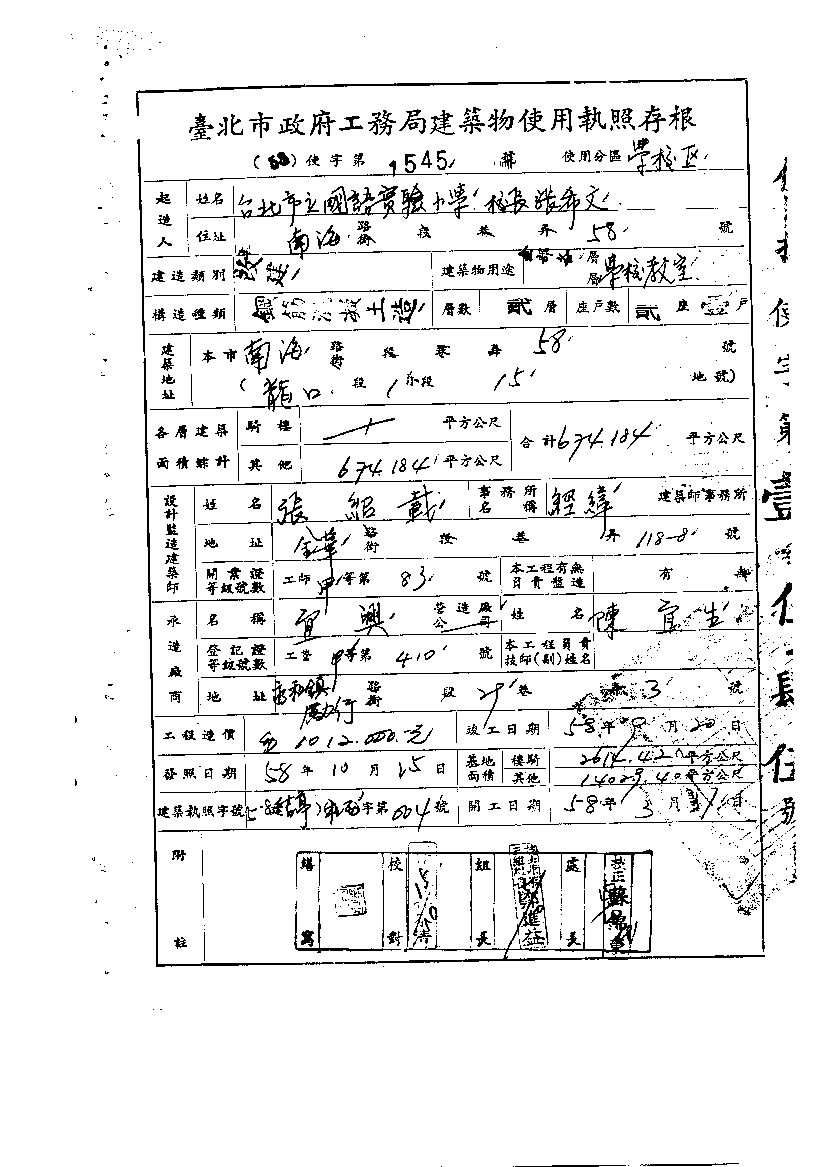 臺北市政府工務局建築物使用執照存根
(58)使字第1545號 使用分區 學校區
起造人 姓名 台北市立國語實驗小學 校長張希文
住址 南海路街 段 巷 弄 58 號
建造類別 建築物用途 層層 學校教室
構造種類 鋼筋混凝土造 層數 貳層 座戶數 貳座壹戶
建築地址 本市南海路街 段 巷 弄 58 號
(龍口段 1小段 15 地號)
各層建築面積綜計 騎樓 平方公尺 合計674.184平方公尺
其他 674.184平方公尺
設計監造建築師 姓名 張紹載 事務所名稱 經緯 建築師事務所
地址 金華路街 段 巷 弄 118-8 號
開業證等級號數 工師甲等第83號 本工程有無負責監造 有 無
承造廠商 名稱 宜興 營造廠公司 姓名 陳宜生
登記證等級號數 工營甲等第410號 本工程負責技師(副)姓名
地址 永和鎮勵行路街 段 29巷 3號
工程造價 1012.000.元 竣工日期 58年9月20日
發照日期 58年10月15日 基地面積 樓騎 平方公尺
其他 平方公尺
建築執照字號 字第004號 開工日期 58年3月 日
附註 繕寫 校對 組長 處長